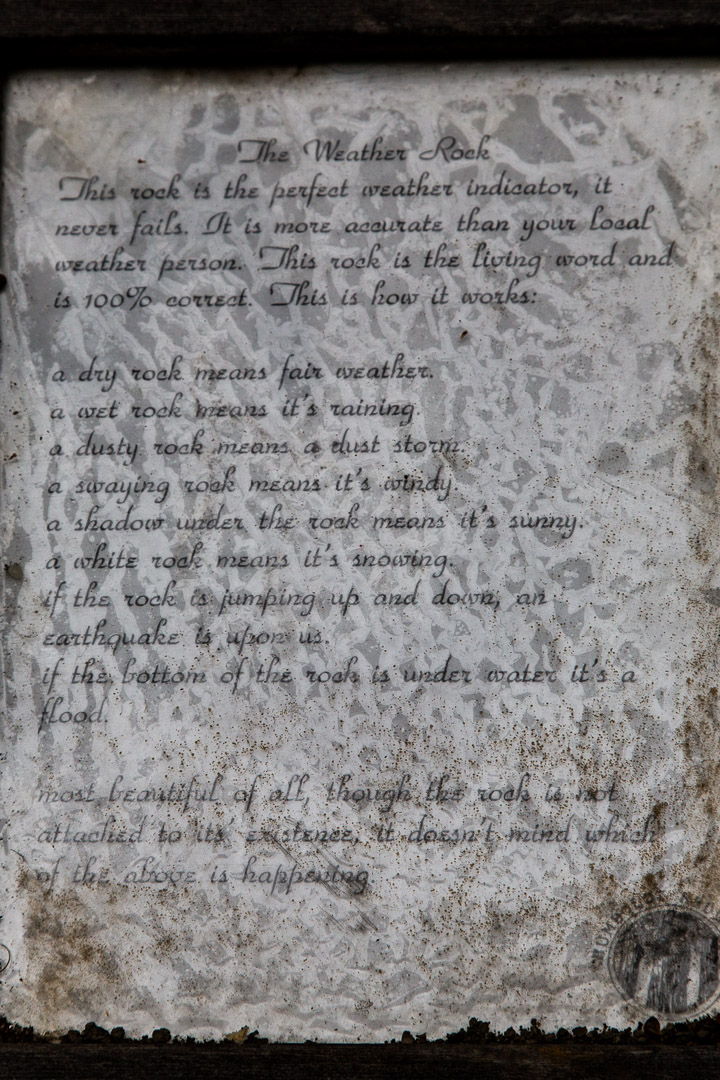 The Weather Rock
This rock is the perfect weather indicator, it
never fails. It is more accurate than your local
weather person. This rock is the living word and
is 100% correct. This is how it works:
a dry rock means fair weather.
a wet rock means it's raining.
a dusty rock means a dust storm.
a swaying rock means it's windy.
a shadow under the rock means it's sunny.
a white rock means it's snowing.
if the rock is jumping up and down, an
earthquake is upon us.
if the bottom of the rock is under water it's a
flood.
most beautiful of all, though the rock is not
attached to its' existence, it doesn't mind which
of the above is happening